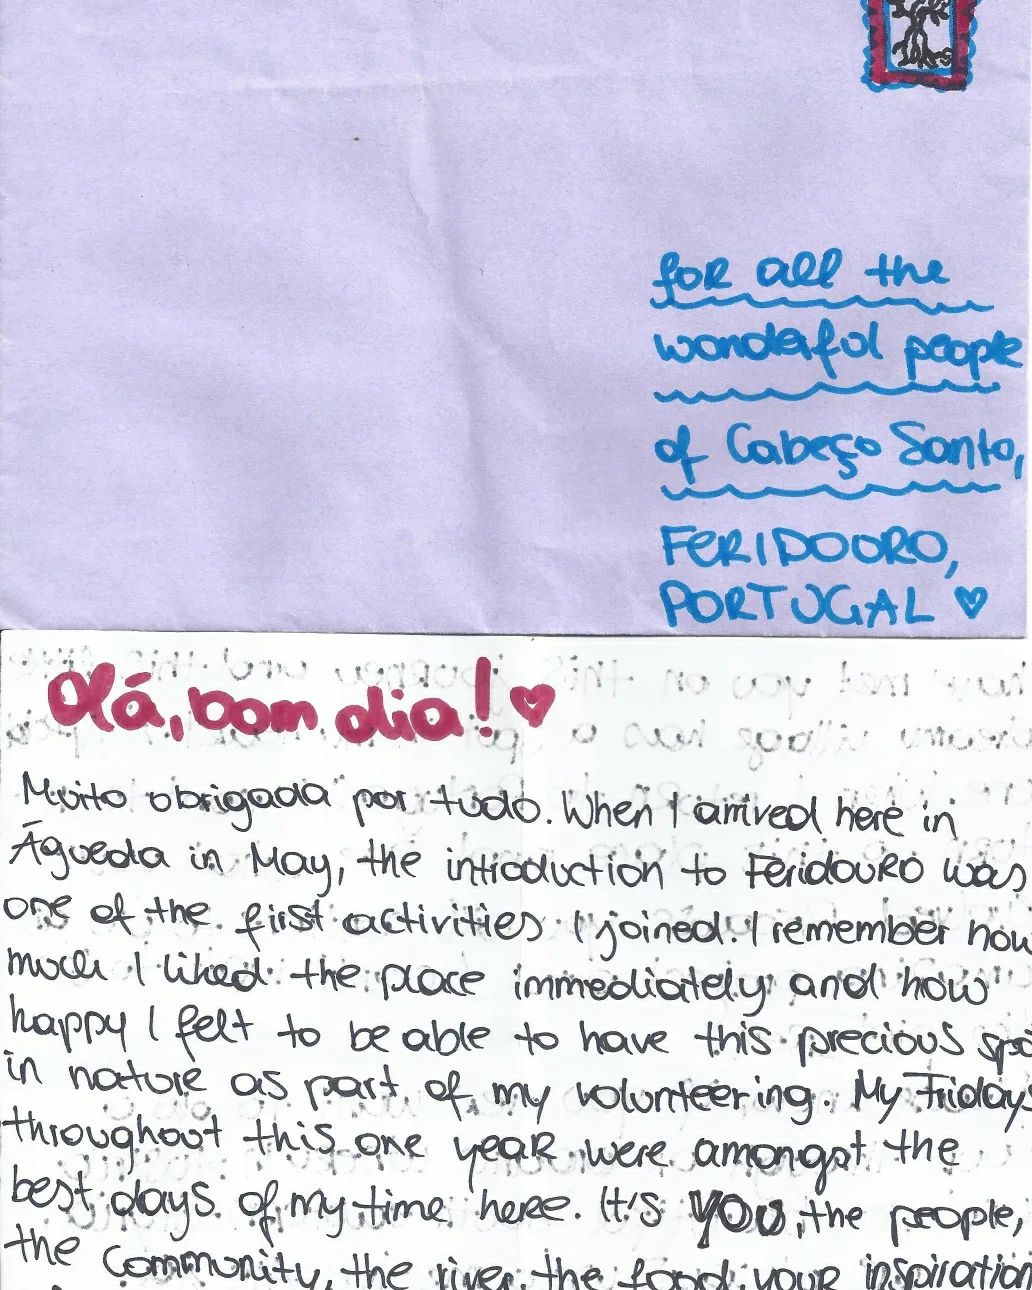 for all the
wonderful people
of Cabeço Santo,
FERIDOURO,
PORTUGAL ♥
Olá, bom dia! ♥
Muito obrigada por tudo. When I arrived here in
Águeda in May, the introduction to Feridouro was
one of the first activities I joined. I remember how
much I liked the place immediately and how
happy I felt to be able to have this precious spo
in nature as part of my volunteering. My Fridays
throughout this one year were amongst the
best days of my time here. It's YOU, the people,
the community, the river, the food, your inspiration